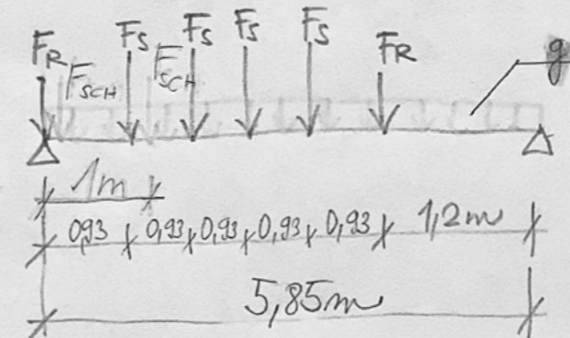 F_R F_SCH F_S F_SCH F_S F_S F_S F_R g
1m
0,93 0,93 0,93 0,93 0,93 1,2m
5,85m